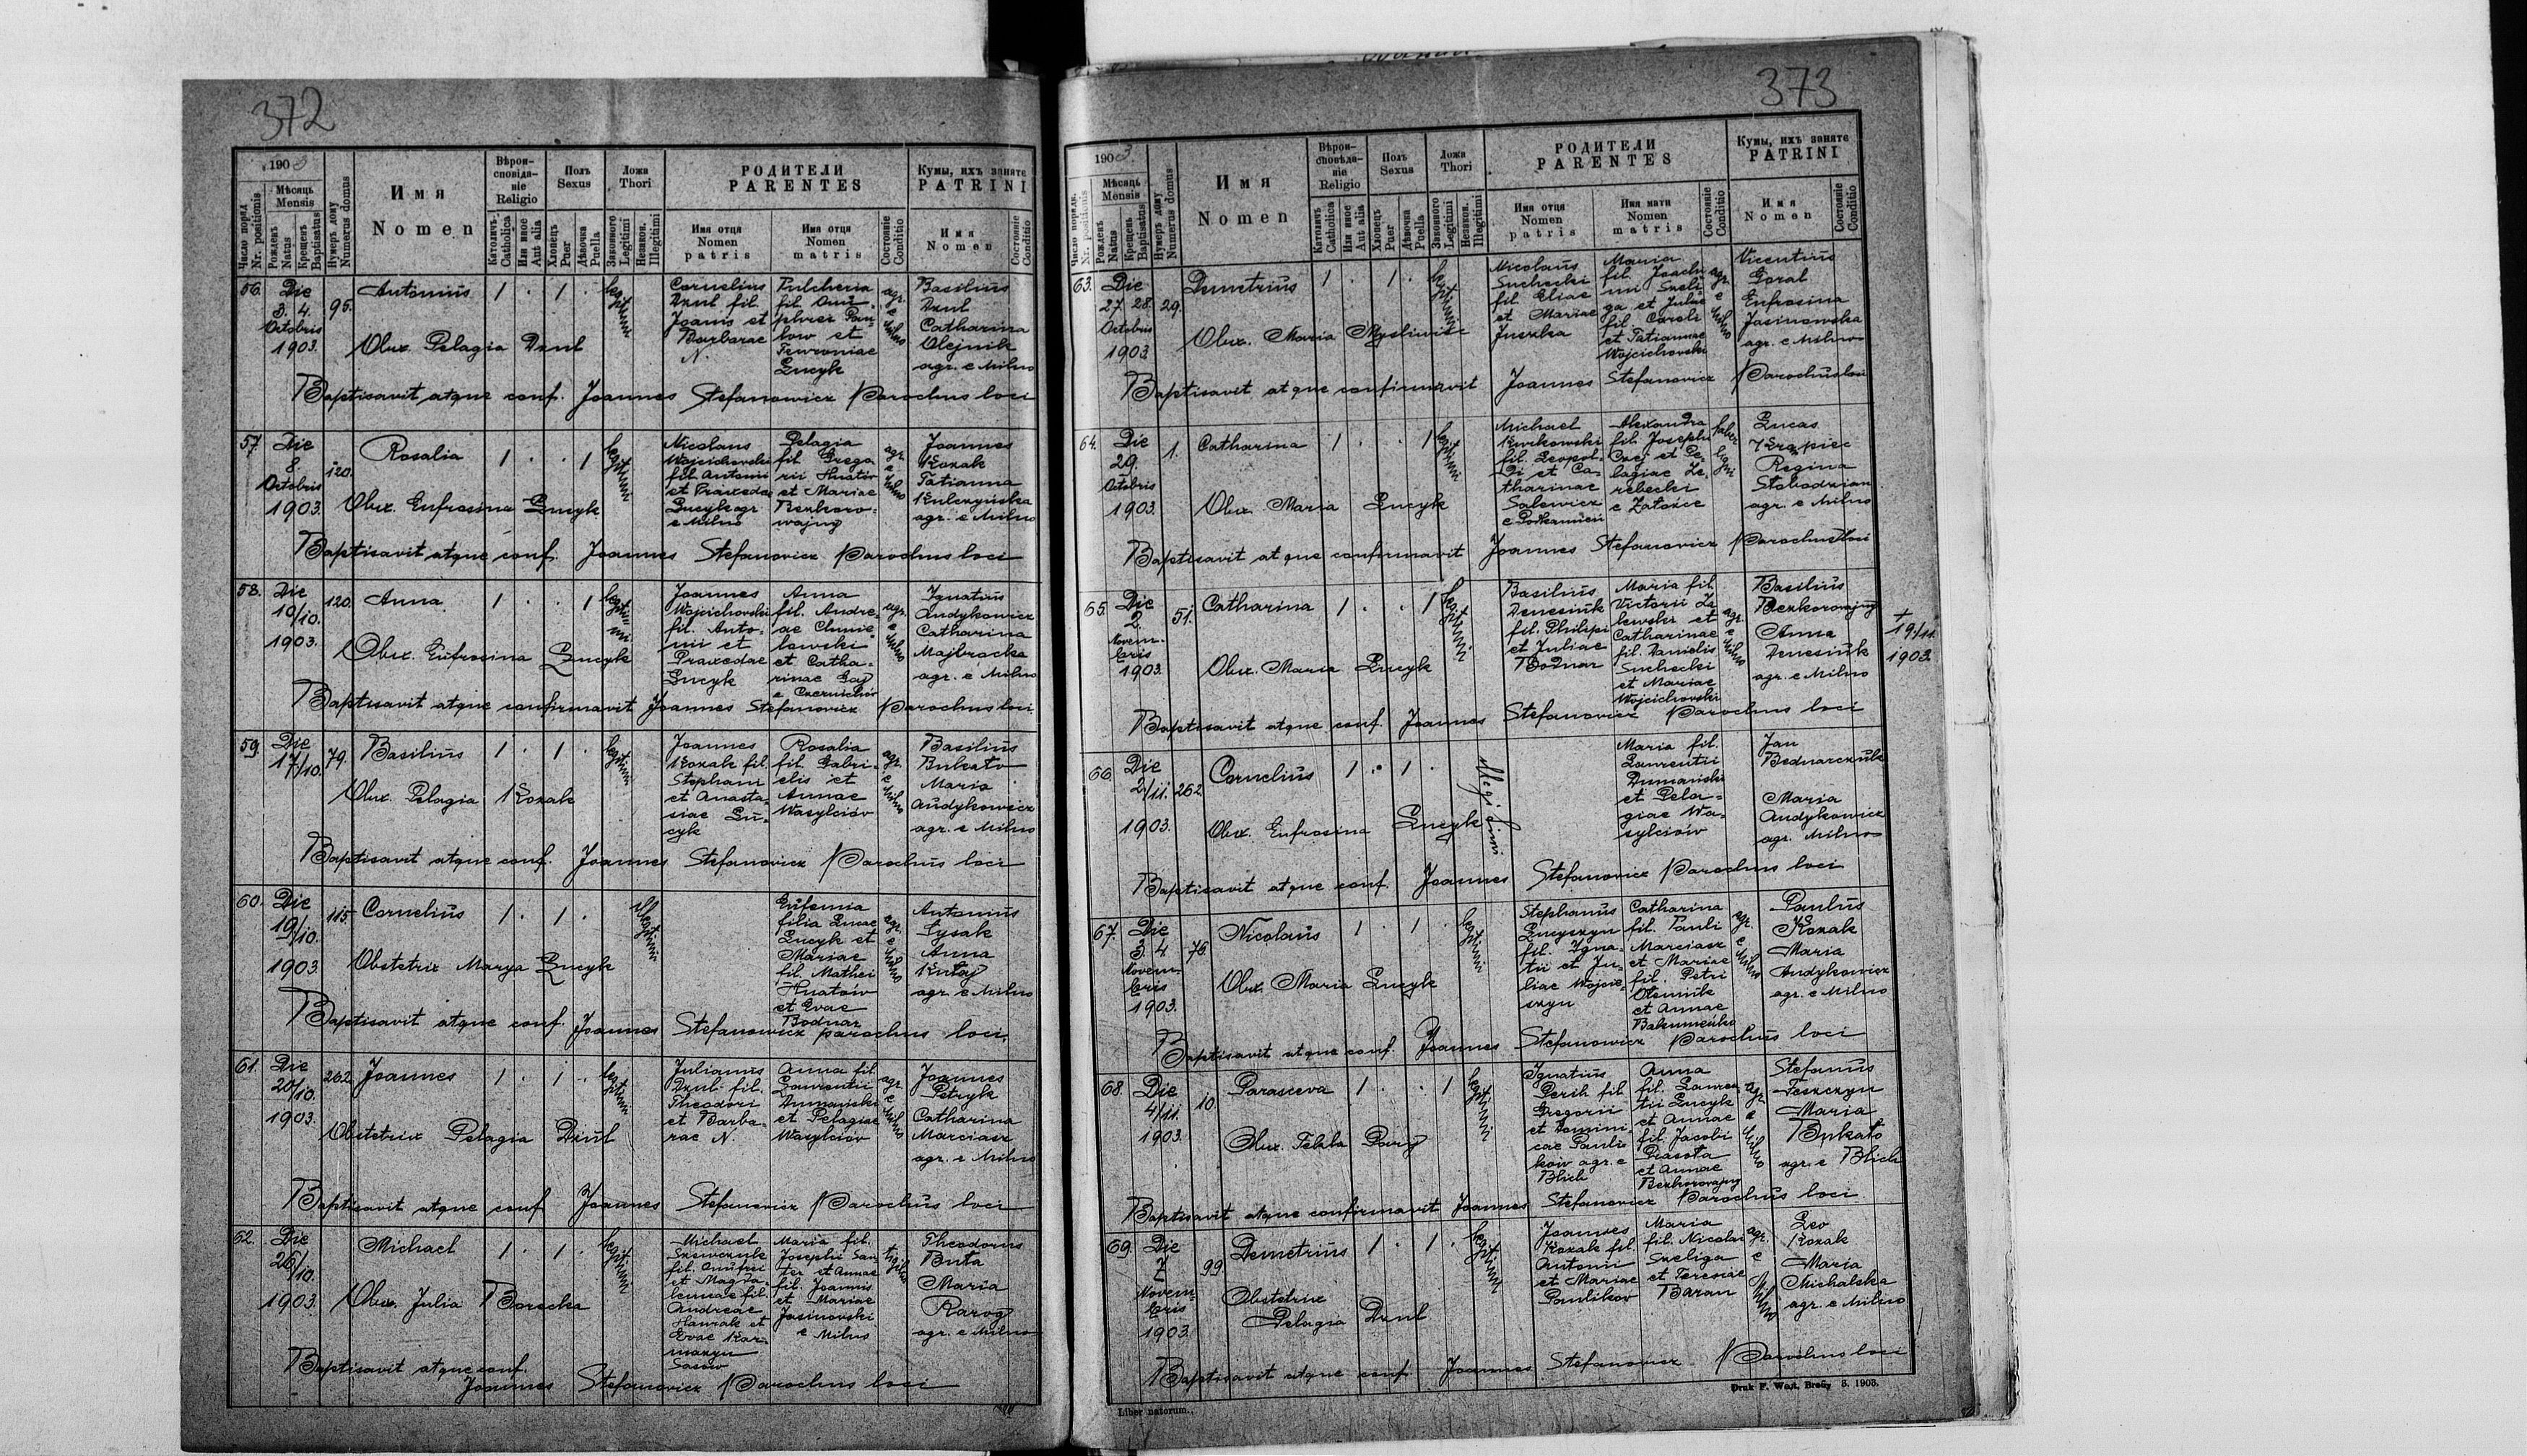 372
1903
Число поряд.
Nr. positionis
Мѣсяць
Mensis
Рожденъ
Natus
Крещенъ
Baptisatus
Нумеръ дому
Numerus domus
Имя
Nomen
Вѣрои-
сповѣда-
ніе
Religio
Католичь.
Catholica
Или иное
Aut alia
Полъ
Sexus
Хлопець
Puer
Дѣвочка
Puella
Ложа
Thori
Законного
Legitimi
Незакон.
Illegitimi
РОДИТЕЛИ
PARENTES
Имя отця
Nomen
patris
Имя отця
Nomen
matris
Состояніе
Conditio
Кумы, ихъ заняте
PATRINI
Имя
Nomen
Состояніе
Conditio
56. Die
3. 4.
Octobris
1903.
95.
Antonius
1 . 1 .
legitimi
Obux. Pelagia Dzul
Cornelius
Dzul fil.
Joanis et
Barbarae
N.
Pulcheria
fil. Onu-
phrei Pau-
low et
Fewroniae
Lucyk
agr. e Milno
Basilius
Dzul
Catharina
Olejnik
agr. e Milno
Baptisavit atque conf. Joannes Stefanowicz Parochus loci
57. Die
8
Octobris
1903.
120.
Rosalia
1 . . 1
legitimi
Obux. Eufrosina Lucyk
Nicolaus
Wojcichowski
fil. Antonii
et Praxedae
Lucyk agr.
e Milno
Pelagia
fil. Grego
rii Hnatiw
et Mariae
Bezkoro-
wajny
agr. e Milno
Joannes
Kozak
Tatianna
Kulczyńska
agr. e Milno
Baptisavit atque conf. Joannes Stefanowicz Parochus loci
58. Die
10/10.
1903.
120.
Anna
1 . . 1
legitimi
Obux. Eufrosina Lucyk
Joannes
Wojcichowski
fil. Anto-
nii et
Praxedae
Lucyk
Anna
fil. Andre-
ae Chmie-
lowski
et Catha-
rinae Gaj
e Czernichów
agr. e Milno
Ignatius
Andykowicz
Catharina
Majbrocka
agr. e Milno
Baptisavit atque confirmavit Joannes Stefanowicz Parochus loci
59. Die
17/10.
79.
Basilius
1 . 1 .
legitimi
Obux. Pelagia Kozak
Joannes
Kozak fil.
Stephani
et Anasta-
siae Lu-
cyk
Rosalia
fil. Gabri-
elis et
Annae
Wasylciów
agr. e Milno
Basilius
Bukato
Maria
Andykowicz
agr. e Milno
Baptisavit atque conf. Joannes Stefanowicz Parochus loci
60. Die
19/10.
1903.
115
Cornelius
1 . 1 .
Illegitimi
Obstetrix Marya Lucyk
Eufemia
filia Lucae
Lucyk et
Mariae
fil. Mathei
Hnatów
et Evae
Bodnar
agr. e Milno
Antonius
Łysak
Anna
Kutaj
agr. e Milno
Baptisavit atque conf. Joannes Stefanowicz parochus loci.
61. Die
20/10.
1903.
262
Joannes
1 . 1 .
legitimi
Obstetrix Pelagia Dzul
Julianus
Dzul fil.
Theodori
et Barba-
rae N.
Anna fil.
Laurentii
Dumański
et Pelagiae
Wasylciów
agr. e Milno
Joannes
Petryk
Catharina
Marciasz
agr. e Milno
Baptisavit atque conf Joannes Stefanowicz Parochus loci
62. Die
26/10.
1903.
Michael
1 . 1 .
legitimi
Obux. Julia Borecka
Michael
Szewczuk
fil. Onufrei
et Magda-
lenae fil.
Andreae
Hanzak et
Evae Kar-
mazyn
Sasów
Maria fil.
Josephi San-
ter et Annae
fil. Joannis
et Mariae
Jasinowski
e Milno
Theodorus
Buta
Maria
Karog
agr. e Milno
Baptisavit atque conf.
Joannes Stefanowicz Parochus loci
373
1903
Число поряд.
Nr. positionis
Мѣсяць
Mensis
Рожденъ
Natus
Крещенъ
Baptisatus
Нумеръ дому
Numerus domus
Имя
Nomen
Вѣрои-
сповѣда-
ніе
Religio
Католичь.
Catholica
Или иное
Aut alia
Полъ
Sexus
Хлопець
Puer
Дѣвочка
Puella
Ложа
Thori
Законного
Legitimi
Незакон.
Illegitimi
РОДИТЕЛИ
PARENTES
Имя отця
Nomen
patris
Имя мати
Nomen
matris
Состояніе
Conditio
Кумы, ихъ заняте
PATRINI
Имя
Nomen
Состояніе
Conditio
63. Die
27. 28.
Octobris
1903
29.
Demetrius
1 . 1 .
legitimi
Obux. Maria Mysliwiec
Nicolaus
Suchecki
fil. Eliae
et Mariae
Juszka
Maria
fil. Joach
imi Szeli-
ga et Juliae
fil. Caroli
et Tatiannae
Wojcichowski
agr. e Milno
Vicentius
Goral
Eufrosina
Jasinowska
agr. e Milno
Baptisavit atque confirmavit Joannes Stefanowicz Parochus loci
64. Die
29.
Octobris
1903.
1.
Catharina
1 . . 1
legitimi
Obux. Maria Lucyk
Michael
Kwikowski
fil. Leopol-
di et Ca-
tharinae
Salewicz
e Podkamień
Alexandra
fil. Josephi
Czej et Pe-
lagiae Ze-
rebecki
e Załoźce
faber ligni
Lucas
Krąpiec
Regina
Słobodzian
agr. e Milno
Baptisavit atque confirmavit Joannes Stefanowicz Parochus loci
65. Die
2.
Novem-
bris
1903.
51.
Catharina
1 . . 1
legitimi
Obux. Maria Lucyk
Basilius
Denesiuk
fil. Philipi
et Juliae
Bodnar
Maria fil.
Victorii Za
lewski et
Catharinae
fil. Danielis
Suchecki
et Mariae
Wojcichowski
agr. e Milno
Basilius
Bezkorowajny
Anna
Denesiuk
agr. e Milno
+
19/11.
1903.
Baptisavit atque conf. Joannes Stefanowicz Parochus loci
66. Die
2/11.
1903.
262
Cornelius
1 . 1 .
Illegitimi
Obux. Eufrosina Lucyk
Maria fil.
Laurentii
Dumański
et Pela-
giae Wa-
sylciów
Jan
Bednarczuk
Maria
Andykowicz
agr. Milno
Baptisavit atque conf. Joannes Stefanowicz Parochus loci
67. Die
3. 4
Novem-
bris
1903.
76.
Nicolaus
1 . 1 .
legitimi
Obux. Maria Lucyk
Stephanus
Lucyszyn
fil. Igna-
tii et Ju-
liae Wojcie-
szyn
Catharina
fil. Pauli
Marciasz
et Mariae
fil. Petri
Olejnik
et Annae
agr. e Milno
Paulus
Kozak
Maria
Andykowicz
agr. e Milno
Baptisavit atque conf. Joannes Stefanowicz Parochus loci
68. Die
4/11
1903.
10
Parasceva
1 . . 1
legitimi
Obux. Tekla Pary
Ignatius
Perih fil.
Gregorii
et Domini-
cae Pauli-
ków agr. e
Blich
Anna
fil. Lauren-
tii Lucyk
et Annae
fil. Jacobi
Piasota
et Annae
Bezkorowajny
agr. e Milno
Stefanus
Feszczyn
Maria
Bukato
agr. e Blich
Baptisavit atque confirmavit Joannes Stefanowicz Parochus loci
69. Die
7
Novem-
bris
1903.
99
Demetrius
1 . 1 .
legitimi
Obstetrix
Pelagia Dzul
Joannes
Kozak fil.
Antonii
et Mariae
Paulikov
Maria
fil. Nicolai
Szeliga
et Teresiae
Baran
agr. e Milno
Leo
Kozak
Maria
Michalska
agr. e Milno
Baptisavit atque conf. Joannes Stefanowicz Parochus loci
Liber natorum.
Druk F. West, Brody 3. 1903.